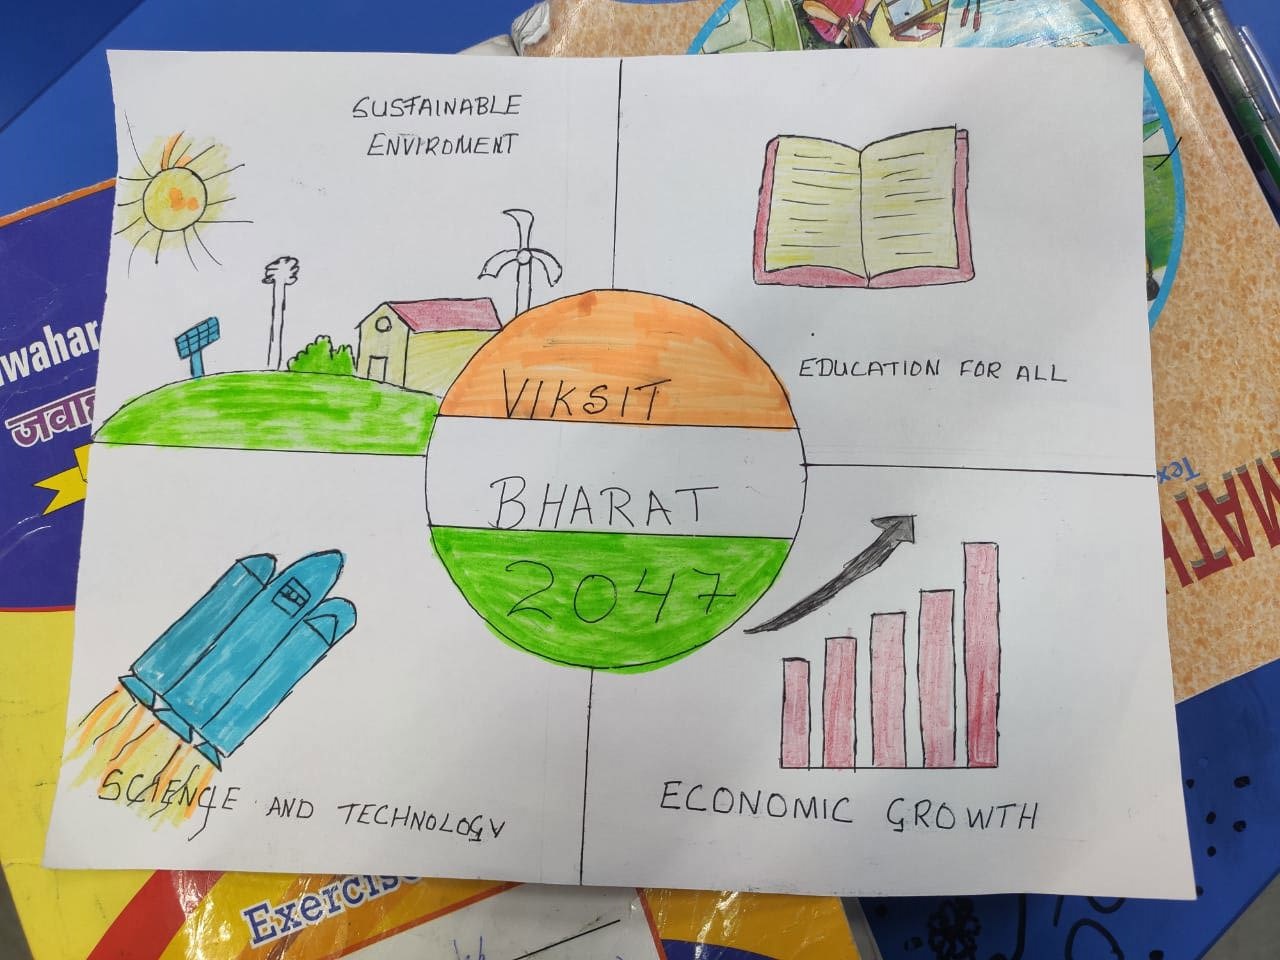 SUSTAINABLE
ENVIROMENT
EDUCATION FOR ALL
VIKSIT
BHARAT
2047
SCIENCE AND TECHNOLOGY
ECONOMIC GROWTH
wahar
जवाह
Exercise
MATH
Tex